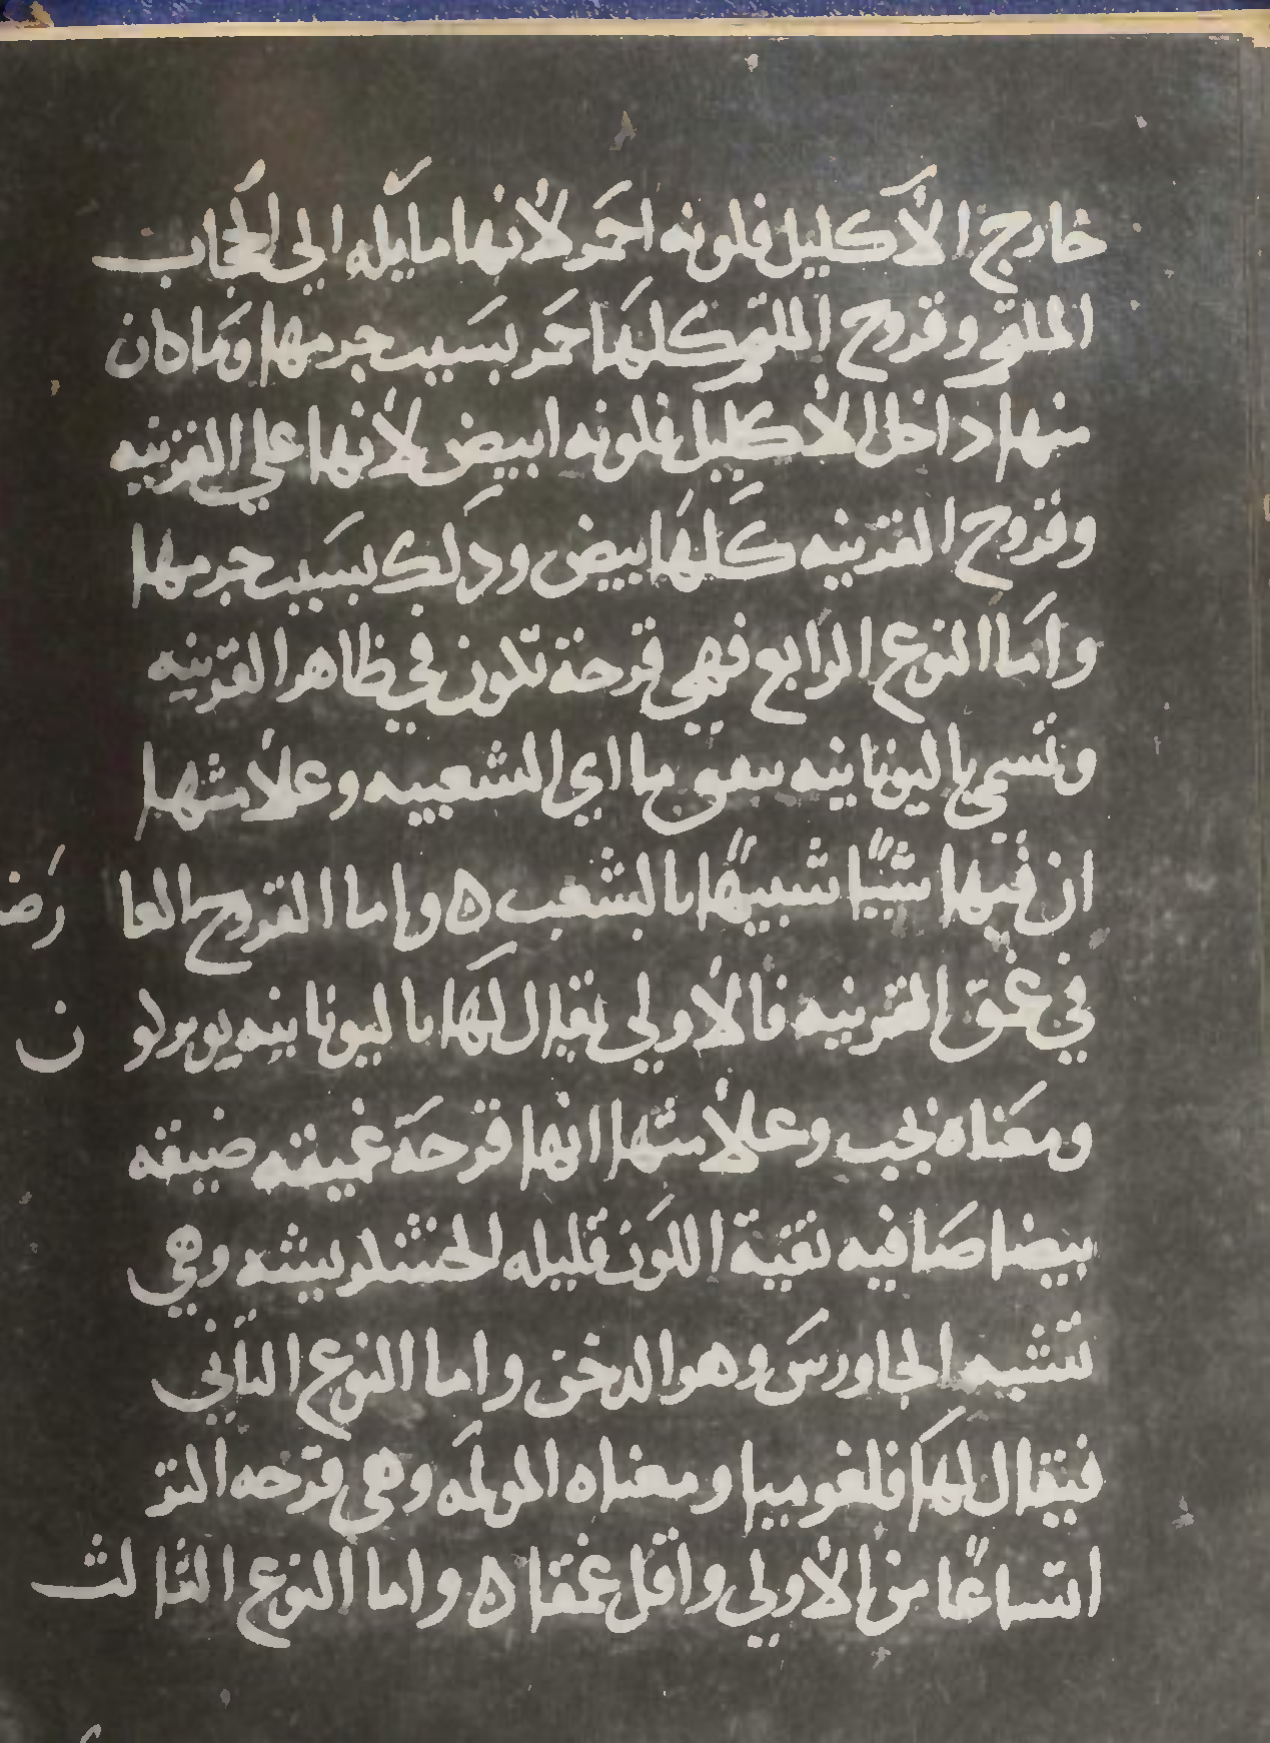 خارج الاكليل فلونه احمر لانها مايله الي الحجاب
الملتحم وقروح الملتحم كلها حمر بسبب جرمها وما كان
منها داخل الاكليل فلونه ابيض لانها علي القرنيه
وقروح القرنيه كلها بيض وذلك بسبب جرمها
واما النوع الرابع فهي قرحة تكون في ظاهر القرنيه
وتسمي باليونانيه اي الشعبيه وعلامتها
ان فيها شيًا شبيهًا بالشعب ه واما القروح العارضه
في عمق القرنيه فالاولي يقال لها باليونانيه بوبرلون
ومعناه نجب وعلامتها انها قرحة عميقه ضيقه
بيضا صافيه نقية اللون قليله الخشكريشه وهي
تشبه الجاورس وهو الدخن واما النوع الثاني
فيقال لها فلغوميا ومعناه المولمه وهي قرحه اكثر
اتساعًا من الاولي واقل عمقا ه واما النوع الثالث